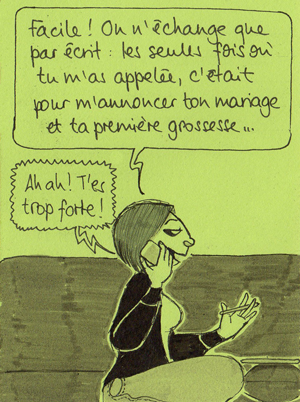 Facile ! On n'échange que
par écrit : les seules fois où
tu m'as appelée, c'était
pour m'annoncer ton mariage
et ta première grossesse...
Ah ah ! T'es
trop forte !